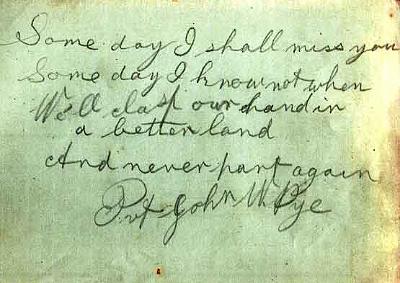 Some day I shall miss you
Some day I know not when
We'll clasp our hand in
a better land
And never part again
Pvt John W Pye